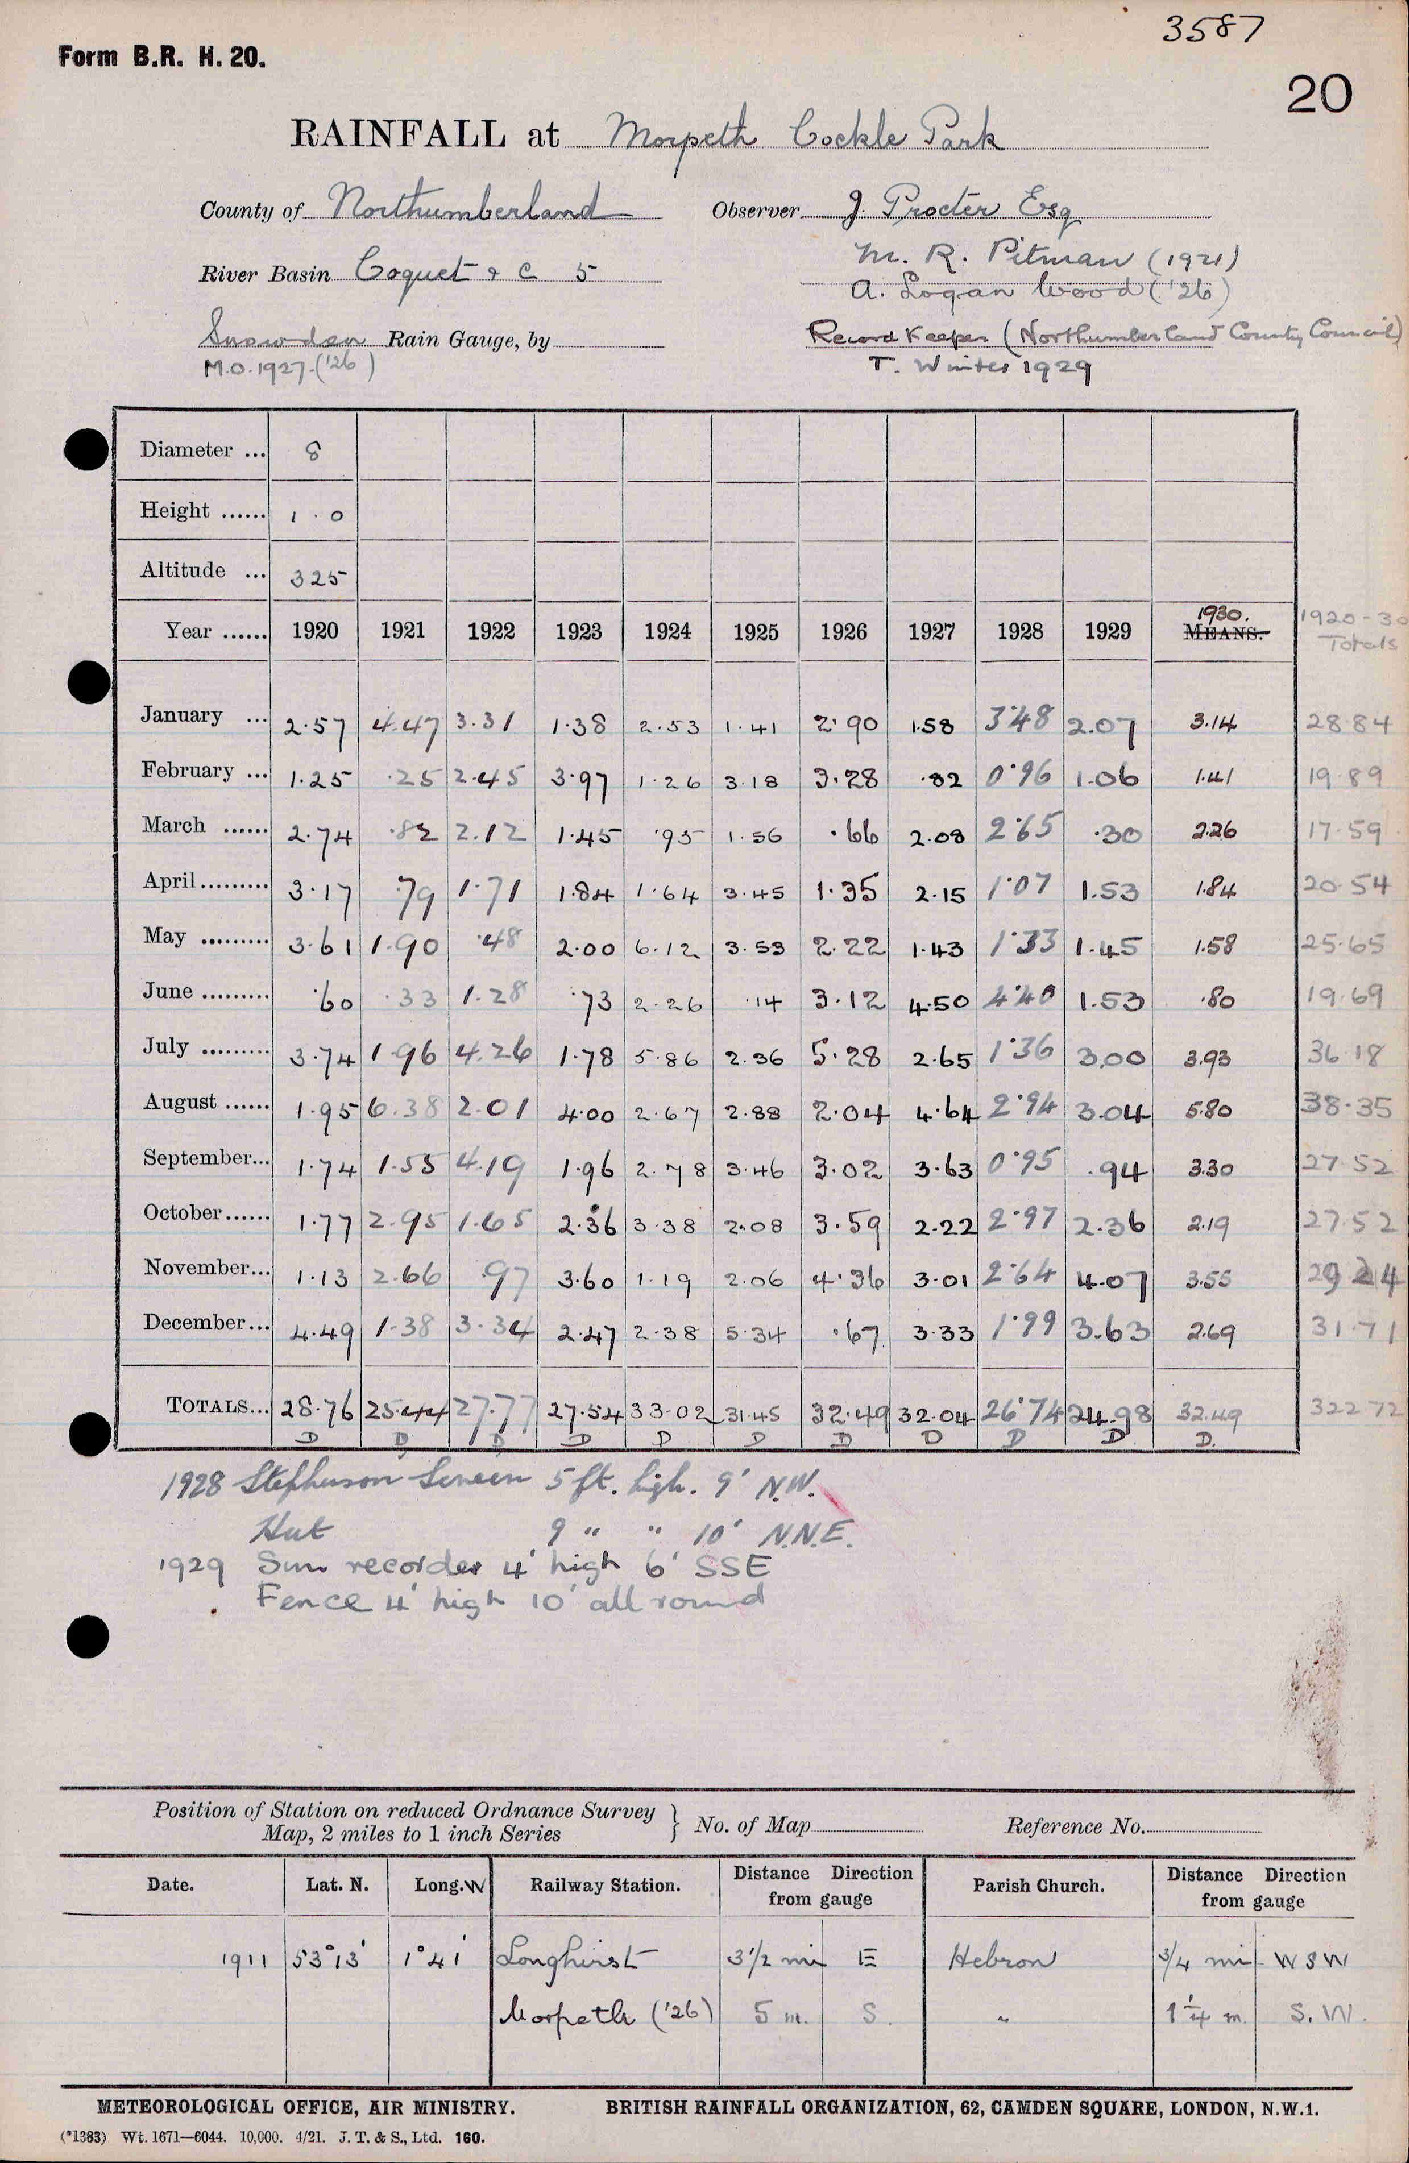 3587
Form B.R. H. 20.
20
RAINFALL at Morpeth Cockle Park
County of Northumberland Observer J. Procter Esq
M. R. Pitman (1921)
River Basin Coquet & c 5
A. Logan Wood ('26)
Snowden Rain Gauge, by
Record Keeper (Northumberland County Council)
M.O. 1927. ('26)
T. Winter 1929
Diameter ... 8
Height ...... 1.0
Altitude ... 325
Year ...... 1920 1921 1922 1923 1924 1925 1926 1927 1928 1929 1930. MEANS. 1920-30 Totals
January ... 2.57 4.47 3.31 1.38 2.53 1.41 2.90 1.58 3.48 2.07 3.14 28.84
February ... 1.25 .25 2.45 3.97 1.26 3.18 3.28 .82 0.96 1.06 1.41 19.89
March ...... 2.74 .82 2.12 1.45 .95 1.56 .66 2.08 2.65 .30 2.26 17.59
April ......... 3.17 .79 1.71 1.84 1.64 3.45 1.35 2.15 1.07 1.53 1.84 20.54
May ......... 3.61 1.90 .48 2.00 6.12 3.53 2.22 1.43 1.33 1.45 1.58 25.65
June ......... .60 .33 1.28 .73 2.26 .14 3.12 4.50 4.40 1.53 .80 19.69
July ......... 3.74 1.96 4.26 1.78 5.86 2.36 5.28 2.65 1.36 3.00 3.93 36.18
August ...... 1.95 6.38 2.01 4.00 2.67 2.88 2.04 4.64 2.94 3.04 5.80 38.35
September... 1.74 1.55 4.19 1.96 2.78 3.46 3.02 3.63 0.95 .94 3.30 27.52
October...... 1.77 2.95 1.65 2.36 3.38 2.08 3.59 2.22 2.97 2.36 2.19 27.52
November... 1.13 2.66 .97 3.60 1.19 2.06 4.36 3.01 2.64 4.07 3.55 29.24
December... 4.49 1.38 3.34 2.47 2.38 5.34 .67 3.33 1.99 3.63 2.69 31.71
TOTALS... 28.76 25.44 27.77 27.54 33.02 31.45 32.49 32.04 26.74 24.98 32.49 322.72
D D D D D D D D D D D.
1928 Stephenson Screen 5 ft. high. 9' N.W.
Hut 9 " " 10' N.N.E.
1929 Sun recorder 4' high 6' SSE
Fence 4' high 10' all round
Position of Station on reduced Ordnance Survey
Map, 2 miles to 1 inch Series } No. of Map Reference No.
Date. Lat. N. Long. W Railway Station. Distance Direction from gauge Parish Church. Distance Direction from gauge
1911 53°13' 1°41' Longhirst 3 1/2 mi E Hebron 3/4 mi W S W
Morpeth ('26) 5 m. S. " 1 1/4 m. S. W.
METEOROLOGICAL OFFICE, AIR MINISTRY. BRITISH RAINFALL ORGANIZATION, 62, CAMDEN SQUARE, LONDON, N.W.1.
(*1383) Wt. 1671—6044. 10,000. 4/21. J. T. & S., Ltd. 160.